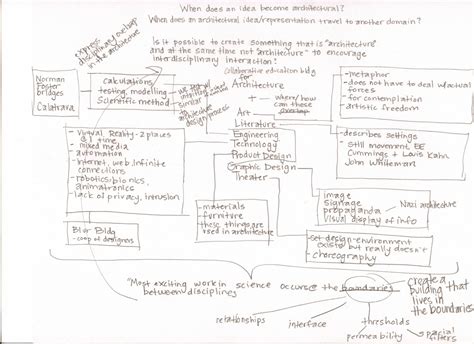 When does an idea become architectural?
When does an architectural idea/representation travel to another domain?
Is it possible to create something that is "architecture"
and at the same time not "architecture" to encourage
interdisciplinary interaction?
express
disciplinary overlap
in the architecture
collaborative education bldg for
Norman
Foster
bridges
Calatrava
calculations
testing, modelling
Scientific method
similar
to
architecture
design process
Architecture
+
Art
when/how
can these
overlap
-metaphor
-does not have to deal w/actual
forces
-for contemplation
-artistic freedom
Literature
Engineering
Technology
Product Design
Graphic Design
Theater
-describes settings
-Still movement, EE
Cummings + Louis Kahn
John Whiteman
-Virtual Reality- 2 places
@ 1 time
-mixed media
-automation
-Internet, web, infinite
connections
-robotics, bionics,
animatronics
-lack of privacy, intrusion
-materials
-furniture
-these things are
used in architecture
image
signage
propaganda
visual display of info
Nazi architecture
Blor Bldg
-coop of designers
-Set design-environment
exists but really doesn't
-choreography
"Most exciting work in science occurs @ the boundaries
between disciplines"
create a
building that
lives in
the boundaries
relationships
interface
thresholds
permeability
spatial
filters